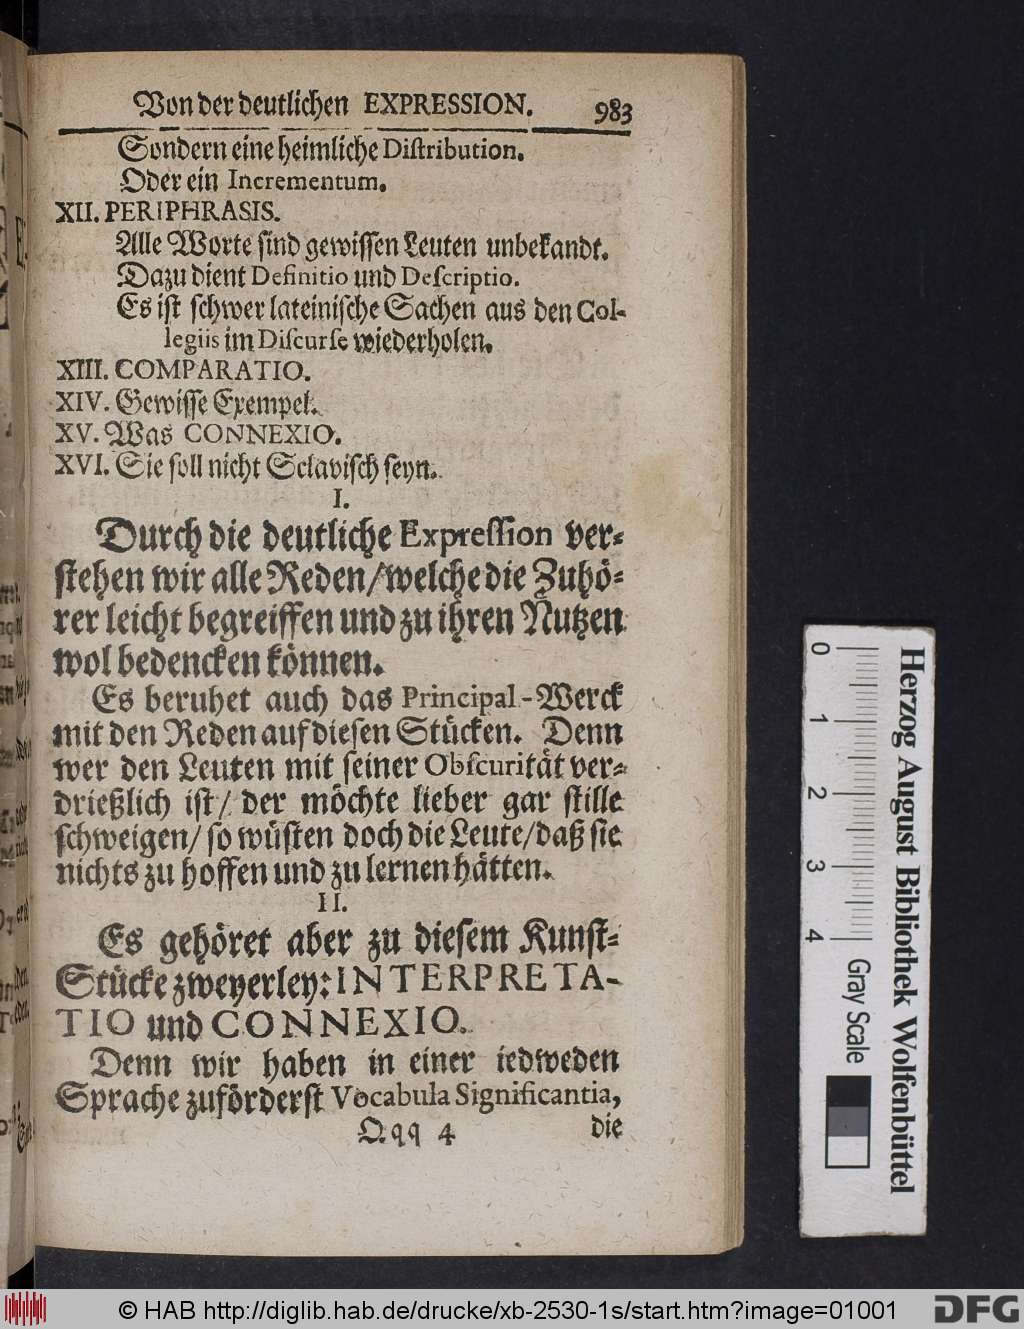 Von der deutlichen EXPRESSION. 983
Sondern eine heimliche Diſtribution.
Oder ein Incrementum.
XII. PERIPHRASIS.
Alle Worte ſind gewiſſen Leuten unbekandt.
Dazu dient Definitio und Deſcriptio.
Es iſt ſchwer lateiniſche Sachen aus den Col-
legiis im Diſcurſe wiederholen.
XIII. COMPARATIO.
XIV. Gewiſſe Exempel.
XV. Was CONNEXIO.
XVI. Sie ſoll nicht Sclaviſch ſeyn.
I.
Durch die deutliche Expreſſion ver-
ſtehen wir alle Reden/ welche die Zuhö-
rer leicht begreiffen und zu ihren Nutzen
wol bedencken können.
Es beruhet auch das Principal-Werck
mit den Reden auf dieſen Stücken. Denn
wer den Leuten mit ſeiner Obſcurität ver-
drießlich iſt/ der möchte lieber gar ſtille
ſchweigen/ ſo wüſten doch die Leute/ daß ſie
nichts zu hoffen und zu lernen hätten.
II.
Es gehöret aber zu dieſem Kunſt-
Stücke zweyerley: INTERPRETA-
TIO und CONNEXIO.
Denn wir haben in einer iedweden
Sprache zuförderſt Vocabula Significantia,
Qqq 4 die
0 1 2 3 4
Gray Scale
Herzog August Bibliothek Wolfenbüttel
© HAB http://diglib.hab.de/drucke/xb-2530-1s/start.htm?image=01001
DFG